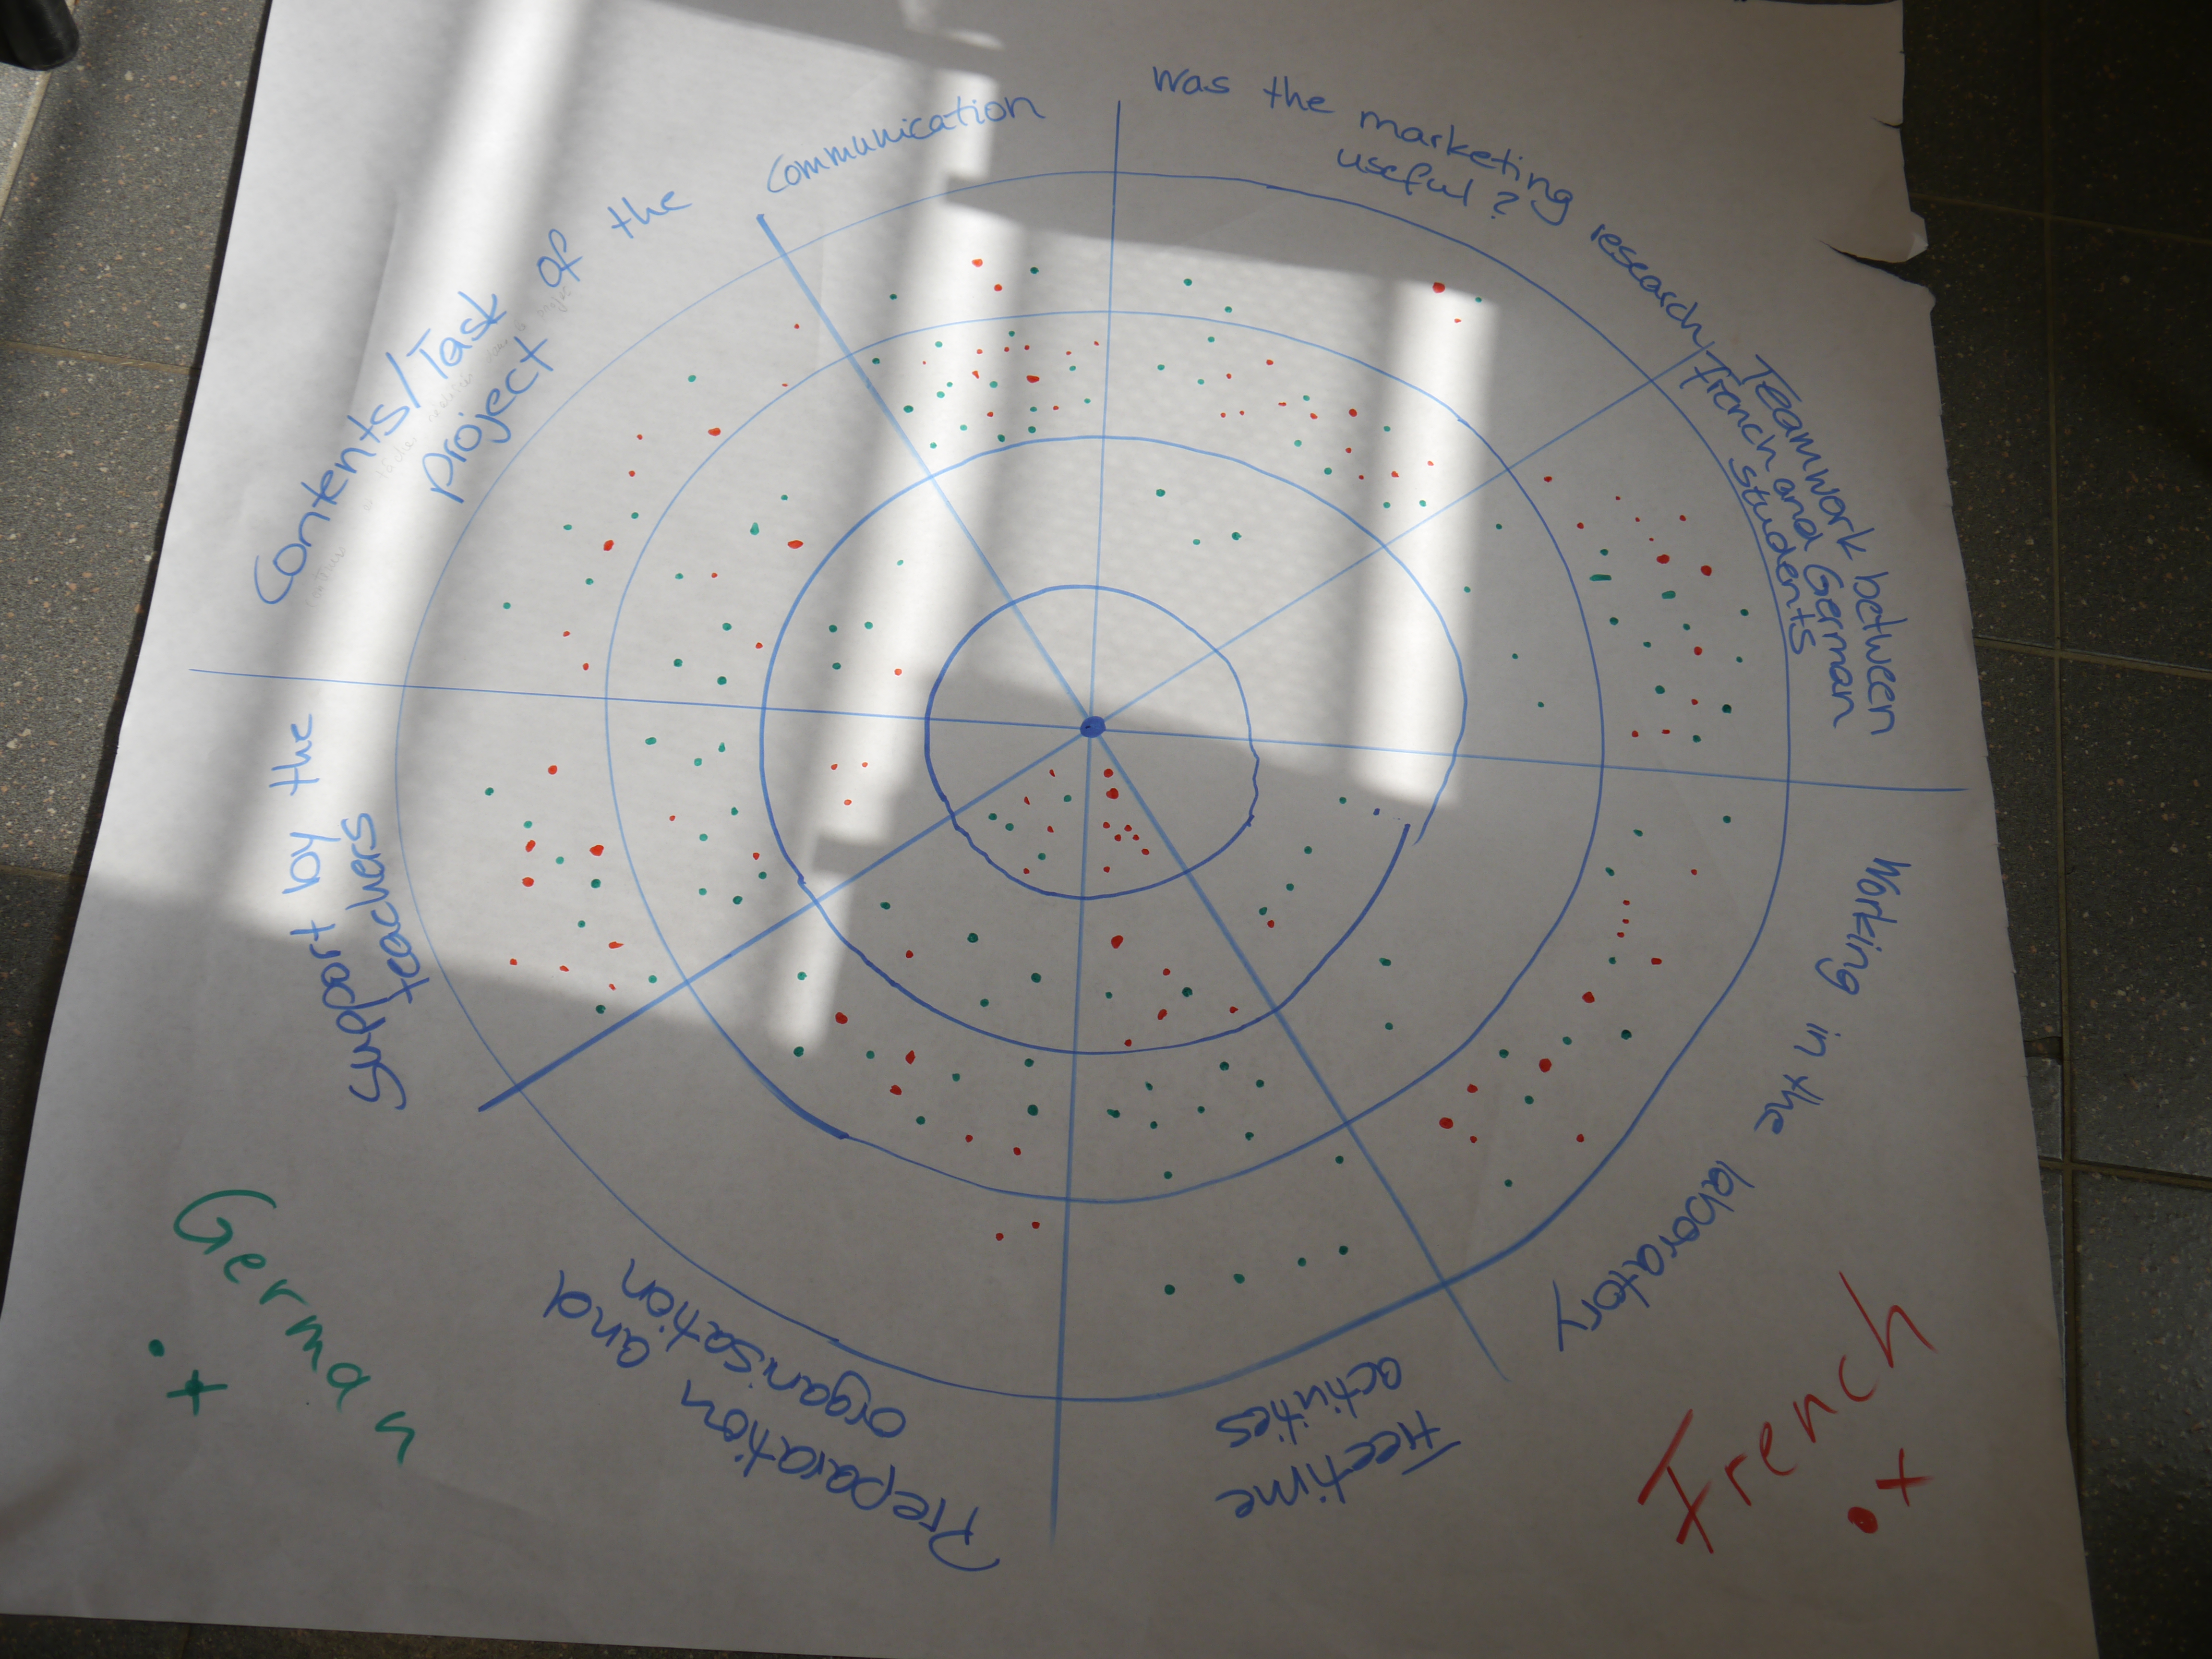 Communication
Was the marketing research
useful?
Teamwork between
French and German
students
Working in the laboratory
Freetime
activities
Preparation and
organisation
Support by the
teachers
Contents/Task of the
project
German
French